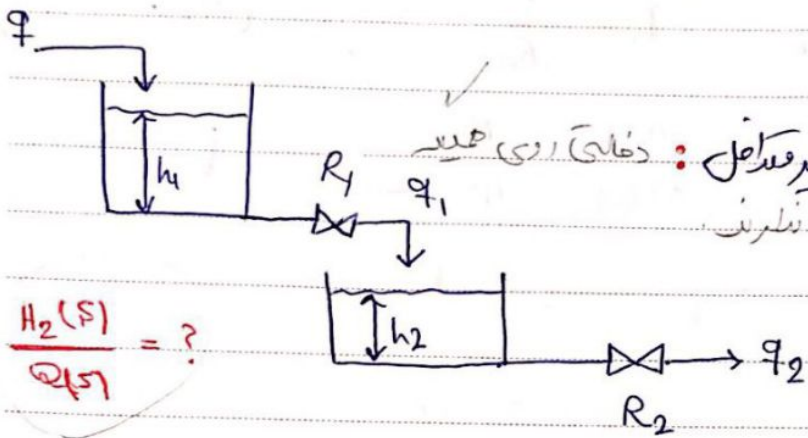 q
h₁
R₁
q₁
غیر متداخل : دخالتی روی همدیگه
ندارند.
h₂
q₂
R₂
H₂(s)/Q(s) = ?